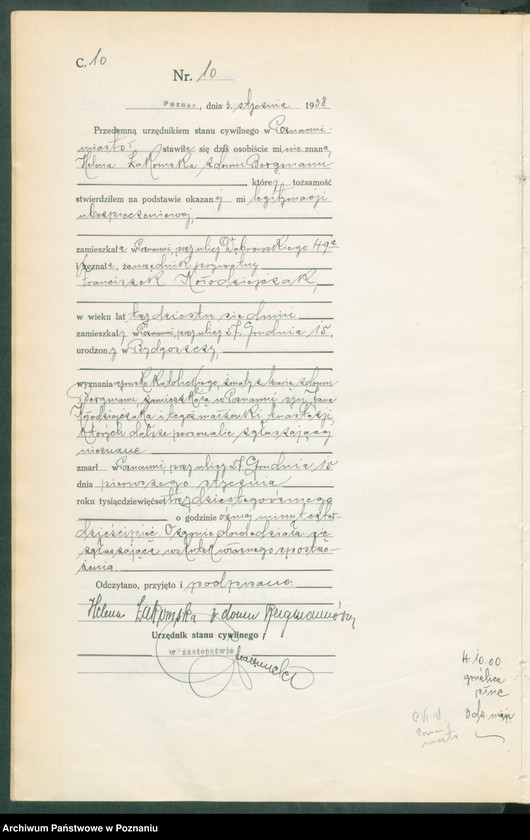 C. 10
Nr. 10
Poznań, dnia 3. stycznia 1938
Przedemną urzędnikiem stanu cywilnego w Poznaniu-
miasto, stawiła się dziś osobiście mi nie znana,
Helena Łakomska z domu Bergmann
której tożsamość
stwierdziłem na podstawie okazanej mi legitymacji
ubezpieczeniowej,
zamieszkała w Poznaniu, przy ulicy Dąbrowskiego 49a
i zeznała, że urzędnik prywatny
Franciszek Kołodziejczak,
w wieku lat trzydziestu siedmiu
zamieszkały w Poznaniu, przy ulicy 27. Grudnia 15,
urodzony w Bydgoszczy,
wyznania rzymsko katolickiego, żonaty z Marią z domu
Bergmann, zamieszkałą w Poznaniu, syn Jana
Kołodziejczaka i tegoż małżonki Anastazji,
których dalsze personalie zgłaszającej
nieznane
zmarł w Poznaniu, przy ulicy 27. Grudnia 15
dnia pierwszego stycznia
roku tysiącdziewięćset trzydziestego ósmego
o godzinie ósmej minut
dzieścipięć. O zgonie dowiedziała się
zgłaszająca wskutek własnego spostrze-
żenia.
Odczytano, przyjęto i podpisano.
Helena Łakomska z domu Bergmannów
Urzędnik stanu cywilnego
w zastępstwie
H. 10.00
gruźlica
płuc
Archiwum Państwowe w Poznaniu